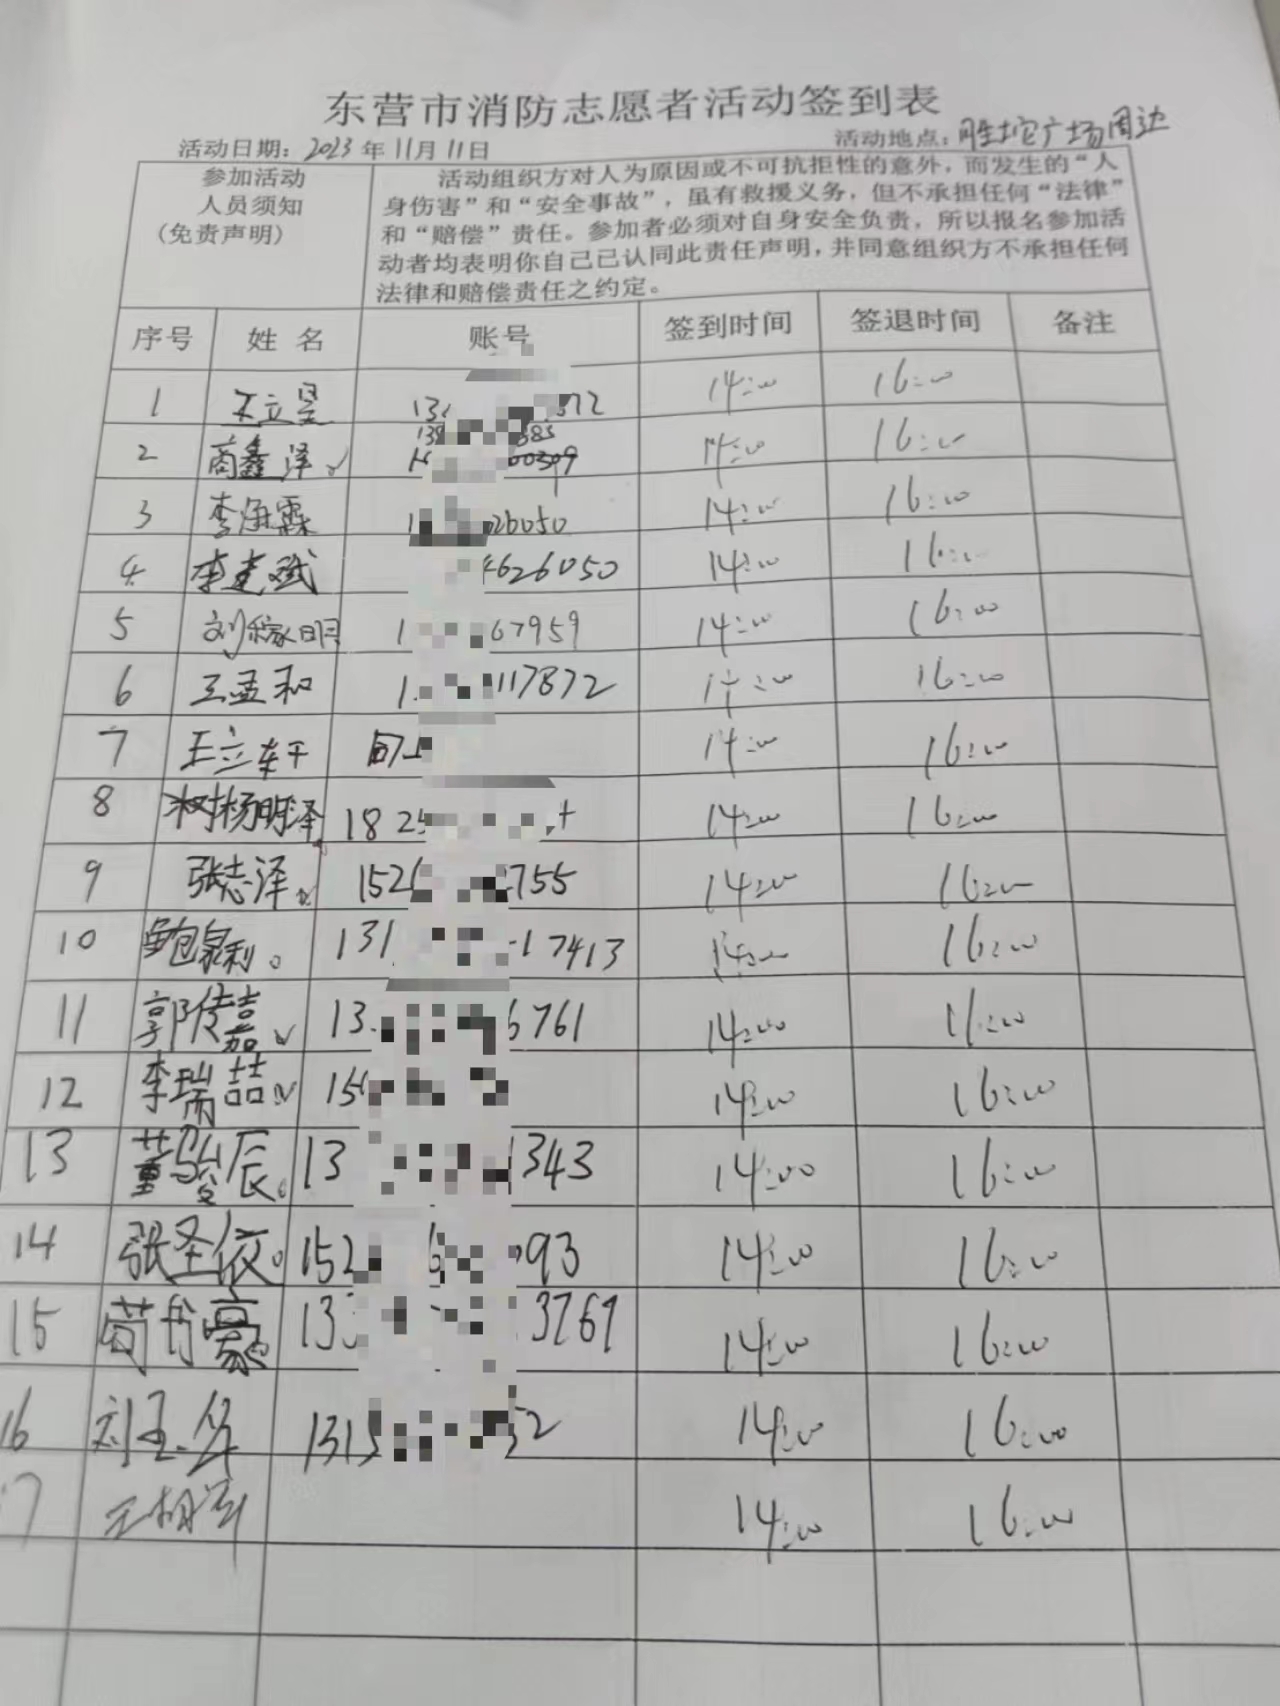 东营市消防志愿者活动签到表
活动日期：2023年11月11日 活动地点：胜坨广场周边
参加活动
人员须知
（免责声明）
活动组织方对人为原因或不可抗拒性的意外，而发生的“人
身伤害”和“安全事故”，虽有救援义务，但不承担任何“法律”
和“赔偿”责任。参加者必须对自身安全负责，所以报名参加活
动者均表明你自己已认同此责任声明，并同意组织方不承担任何
法律和赔偿责任之约定。
序号 姓名 账号 签到时间 签退时间 备注
1 王立昱 14:00 16:00
2 商鑫泽 14:00 16:00
3 李海霖 26050 14:00 16:00
4 李建斌 4626050 14:00 16:00
5 刘稼明 1 67959 14:00 16:00
6 王孟和 1 117872 14:00 16:00
7 王立轩 同上 14:00 16:00
8 杨明泽 1825 14:00 16:00
9 张志泽 152 755 14:00 16:00
10 鲍泉利 131 17413 14:00 16:00
11 郭传嘉 13 6761 14:00 16:00
12 李瑞喆 15 14:00 16:00
13 董骏辰 13 1343 14:00 16:00
14 张圣依 152 6 093 14:00 16:00
15 豪 133 3769 14:00 16:00
16 刘玉华 1315 52 14:00 16:00
17 王相军 14:00 16:00